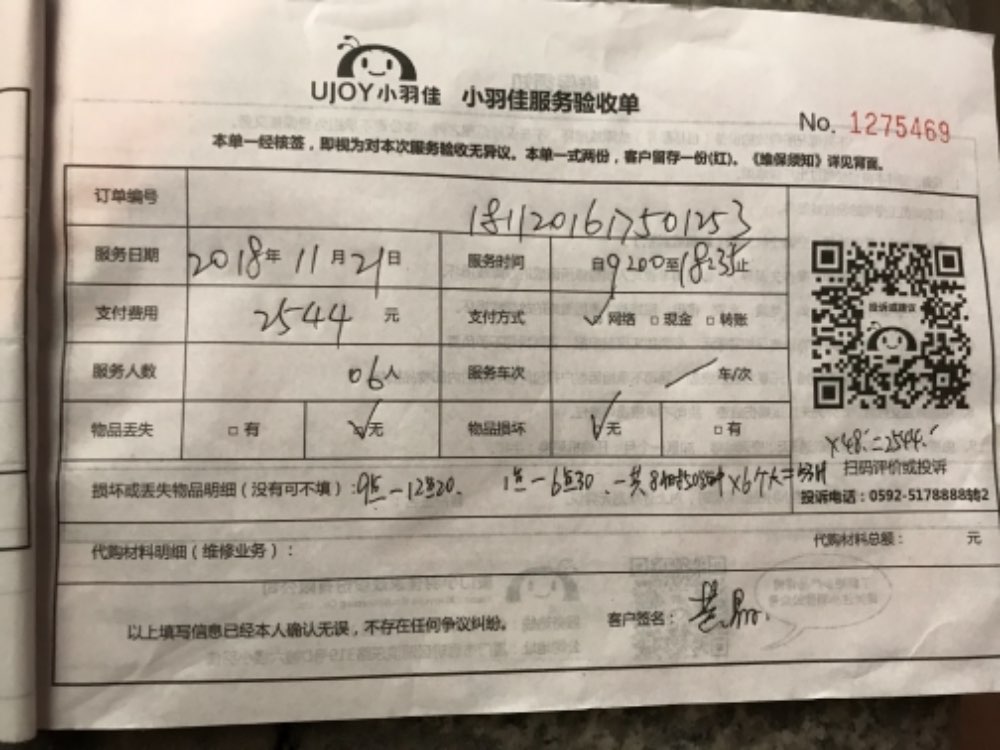 UJOY小羽佳 小羽佳服务验收单
No. 1275469
本单一经核签，即视为对本次服务验收无异议。本单一式两份，客户留存一份(红)。《维保须知》详见背面。
订单编号 1811201617501253
服务日期 2018年 11月 21日 服务时间 自9200至1823止
支付费用 2544 元 支付方式 ☑网络 □现金 □转账
投诉或建议
服务人数 06人 服务车次 / 车/次
物品丢失 □有 ☑无 物品损坏 ☑无 □有
×48.=2544.
扫码评价或投诉
损坏或丢失物品明细（没有可不填）：9点-12点20. 1点-6点30.一共8 ×6个人=
投诉电话：0592-5178888转2
代购材料明细（维修业务）： 代购材料总额： 元
以上填写信息已经本人确认无误，不存在任何争议纠纷。 客户签名：